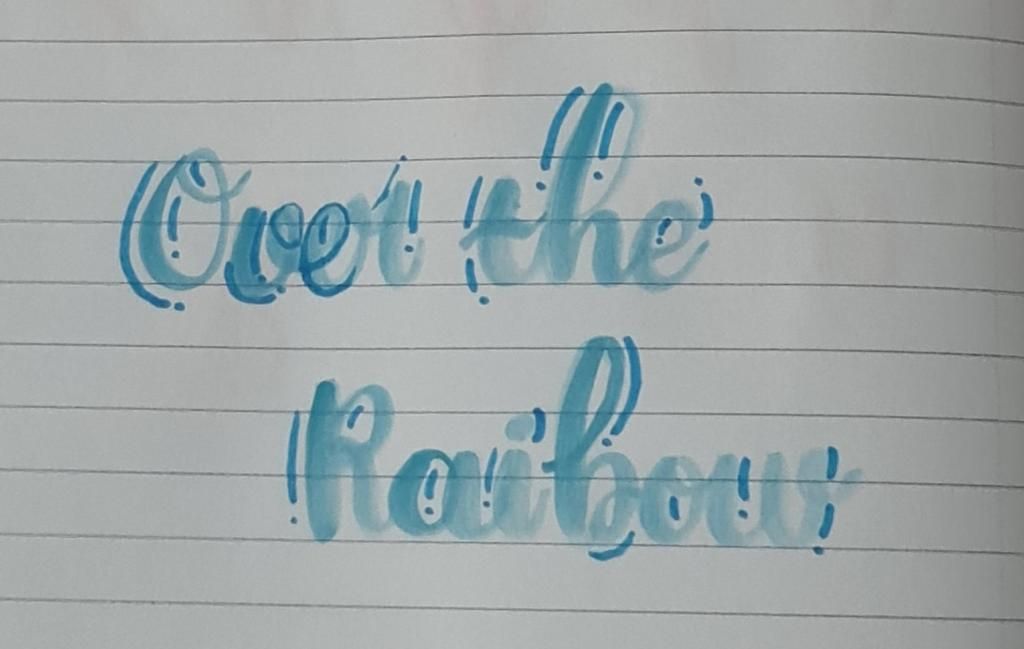 Over the
Raibow